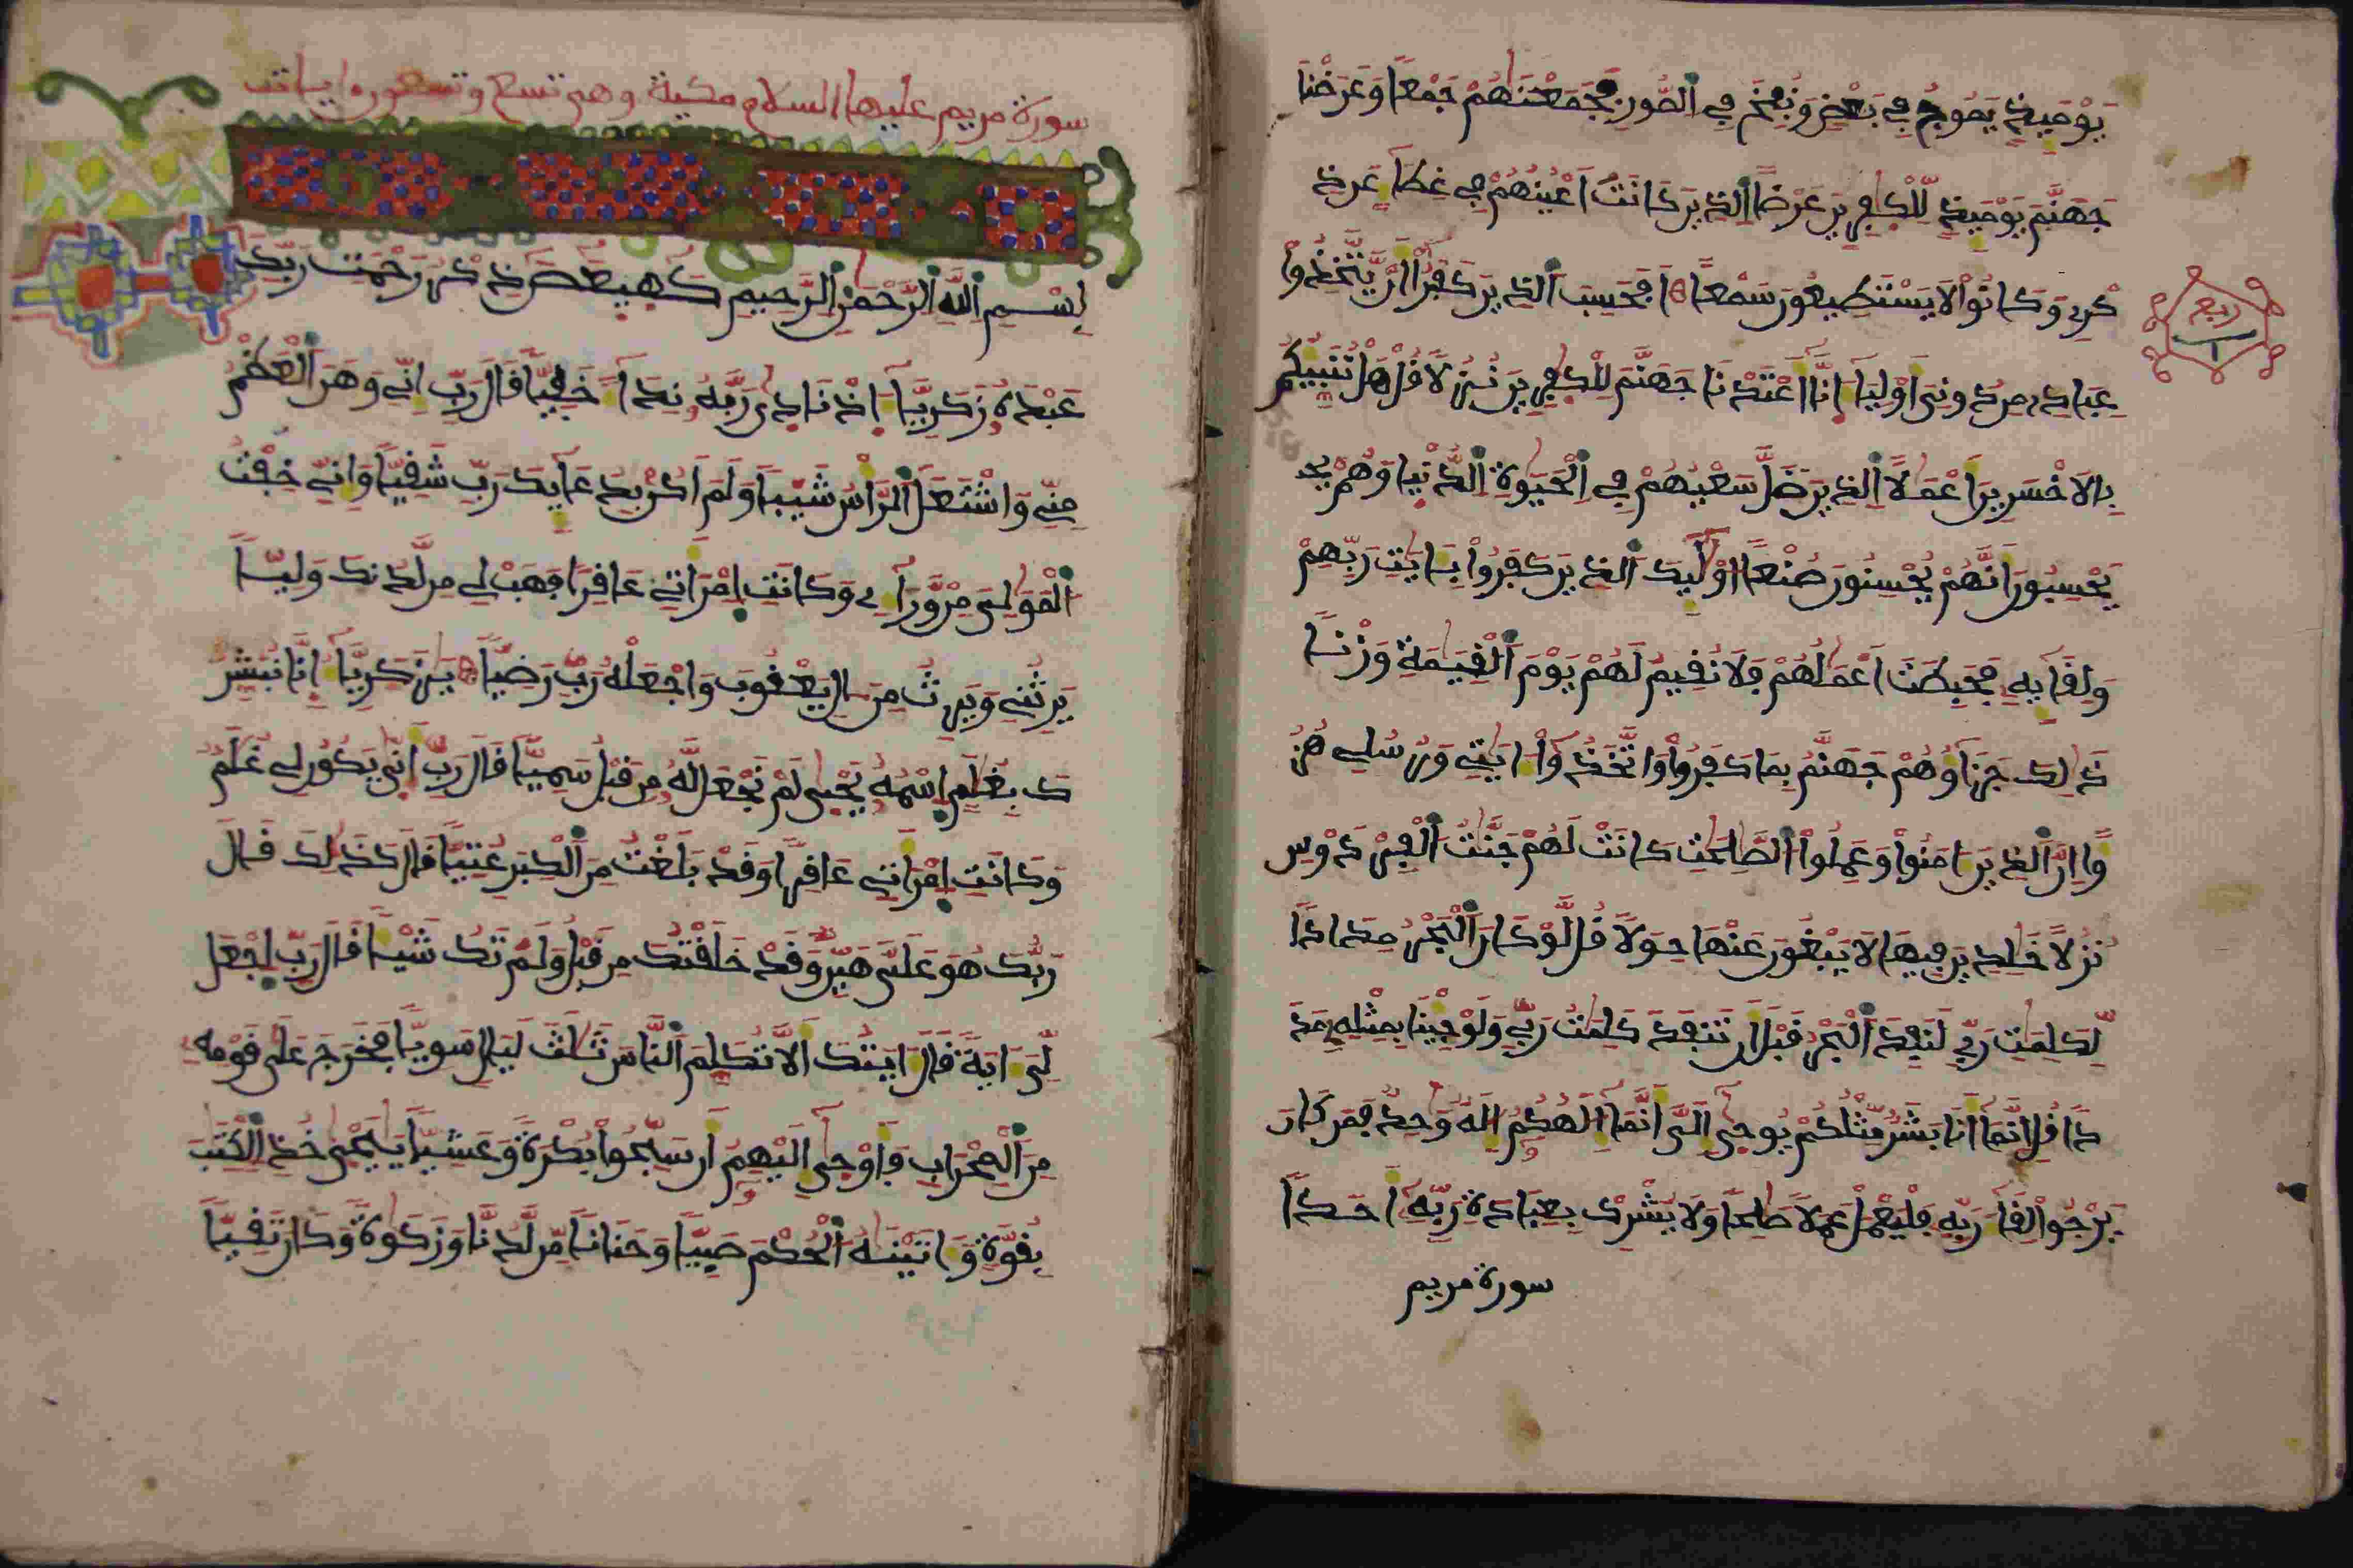 يَوْمَئِذٍ يَمُوجُ فِي بَعْضٍ وَنُفِخَ فِي الصُّورِ فَجَمَعْنَٰهُمْ جَمْعًا وَعَرَضْنَا
جَهَنَّمَ يَوْمَئِذٍ لِّلْكٰفِرِينَ عَرْضًا الذِينَ كَانَتَ اَعْيُنُهُمْ فِي غِطَآءٍ عَن ذِ
كْرِے وَكَانُواْ لَا يَسْتَطِيعُونَ سَمْعًا اَفَحَسِبَ الذِينَ كَفَرُواْ أَنْ يَّتَّخِذُواْ
عِبَادِے مِن دُونِيَ أَوْلِيَآءَ انَّآ أَعْتَدْنَا جَهَنَّمَ لِلْكٰفِرِينَ نُزُلًا قُلْ هَلْ نُنَبِّئُكُم
بِالَاخْسَرِينَ أَعْمَٰلًا الذِينَ ضَلَّ سَعْيُهُمْ فِي الْحَيَوٰةِ الدُّنْيَا وَهُمْ يَحْ
يَحْسِبُونَ أَنَّهُمْ يُحْسِنُونَ صُنْعًا اوْلَٰٓئِكَ الذِينَ كَفَرُواْ بِـَٔايَٰتِ رَبِّهِمْ
وَلِقَآئِهِۦ فَحَبِطَتَ اَعْمَٰلُهُمْ فَلَا نُقِيمُ لَهُمْ يَوْمَ الْقِيَٰمَةِ وَزْنًا
ذَٰلِكَ جَزَآؤُهُمْ جَهَنَّمُ بِمَا كَفَرُواْ وَاتَّخَذُوٓاْ ءَايَٰتِي وَرُسُلِے هُزُ
ؤًا اِنَّ الذِينَ ءَامَنُواْ وَعَمِلُواْ الصَّٰلِحَٰتِ كَانَتْ لَهُمْ جَنَّٰتُ الْفِرْدَوْسِ
نُزُلًا خَٰلِدِينَ فِيهَا لَا يَبْغُونَ عَنْهَا حِوَلًا قُل لَّوْ كَانَ الْبَحْرُ مِدَادًا
لِّكَلِمَٰتِ رَبِّي لَنَفِدَ الْبَحْرُ قَبْلَ أَن تَنفَدَ كَلِمَٰتُ رَبِّي وَلَوْ جِئْنَا بِمِثْلِهِۦ مَدَ
دًا قُلِ انَّمَآ أَنَا بَشَرٌ مِّثْلُكُمْ يُوحَىٰٓ إِلَيَّ أَنَّمَآ إِلَٰهُكُمُۥٓ إِلَٰهٌ وَٰحِدٌ فَمَن كَانَ
يَرْجُواْ لِقَآءَ رَبِّهِۦ فَلْيَعْمَلْ عَمَلًا صَٰلِحًا وَلَا يُشْرِكْ بِعِبَادَةِ رَبِّهِۦٓ أَحَدًا
سورة مريم
ربع
سورة مريم عليها السلام مكية وهي تسع وتسعون ءاية
بِسْمِ اللَّهِ الرَّحْمَٰنِ الرَّحِيمِ كٓهيعٓصٓ ذِكْرُ رَحْمَتِ رَبِّكَ
عَبْدَهُۥ زَكَرِيَّآءَ اذْ نَادَىٰ رَبَّهُۥ نِدَآءً خَفِيًّا قَالَ رَبِّ إِنِّي وَهَنَ الْعَظْمُ
مِنِّي وَاشْتَعَلَ الرَّأْسُ شَيْبًا وَلَمَ اَكُنۢ بِدُعَآئِكَ رَبِّ شَقِيًّا وَإِنِّي خِفْتُ
الْمَوَٰلِيَ مِنْ وَّرَآءِے وَكَانَتِ اِمْرَأَتِي عَاقِرًا فَهَبْ لِي مِن لَّدُنكَ وَلِيًّا
يَرِثُنِي وَيَرِثُ مِنَ ـالِ يَعْقُوبَ وَاجْعَلْهُ رَبِّ رَضِيًّا يَٰزَكَرِيَّآءُ إِنَّا نُبَشِّرُ
كَ بِغُلَٰمٍ اِسْمُهُۥ يَحْيَىٰ لَمْ نَجْعَل لَّهُۥ مِن قَبْلُ سَمِيًّا قَالَ رَبِّ أَنَّىٰ يَكُونُ لِي غُلَٰمٌ
وَكَانَتِ اِمْرَأَتِي عَاقِرًا وَقَدْ بَلَغْتُ مِنَ الْكِبَرِ عُتِيًّا قَالَ كَذَٰلِكَ قَالَ
رَبُّكَ هُوَ عَلَيَّ هَيِّنٌ وَقَدْ خَلَقْتُكَ مِن قَبْلُ وَلَمْ تَكُ شَيْـًٔا قَالَ رَبِّ اِجْعَل
لِّيَ ءَايَةً قَالَ ءَايَتُكَ أَلَّا تُكَلِّمَ النَّاسَ ثَلَٰثَ لَيَالٍ سَوِيًّا فَخَرَجَ عَلَىٰ قَوْمِهِۦ
مِنَ الْمِحْرَابِ فَأَوْحَىٰٓ إِلَيْهِمُۥٓ أَن سَبِّحُواْ بُكْرَةً وَعَشِيًّا يَٰيَحْيَىٰ خُذِ الْكِتَٰبَ
بِقُوَّةٍ وَءَاتَيْنَٰهُ الْحُكْمَ صَبِيًّا وَحَنَانًا مِّن لَّدُنَّا وَزَكَوٰةً وَكَانَ تَقِيًّا